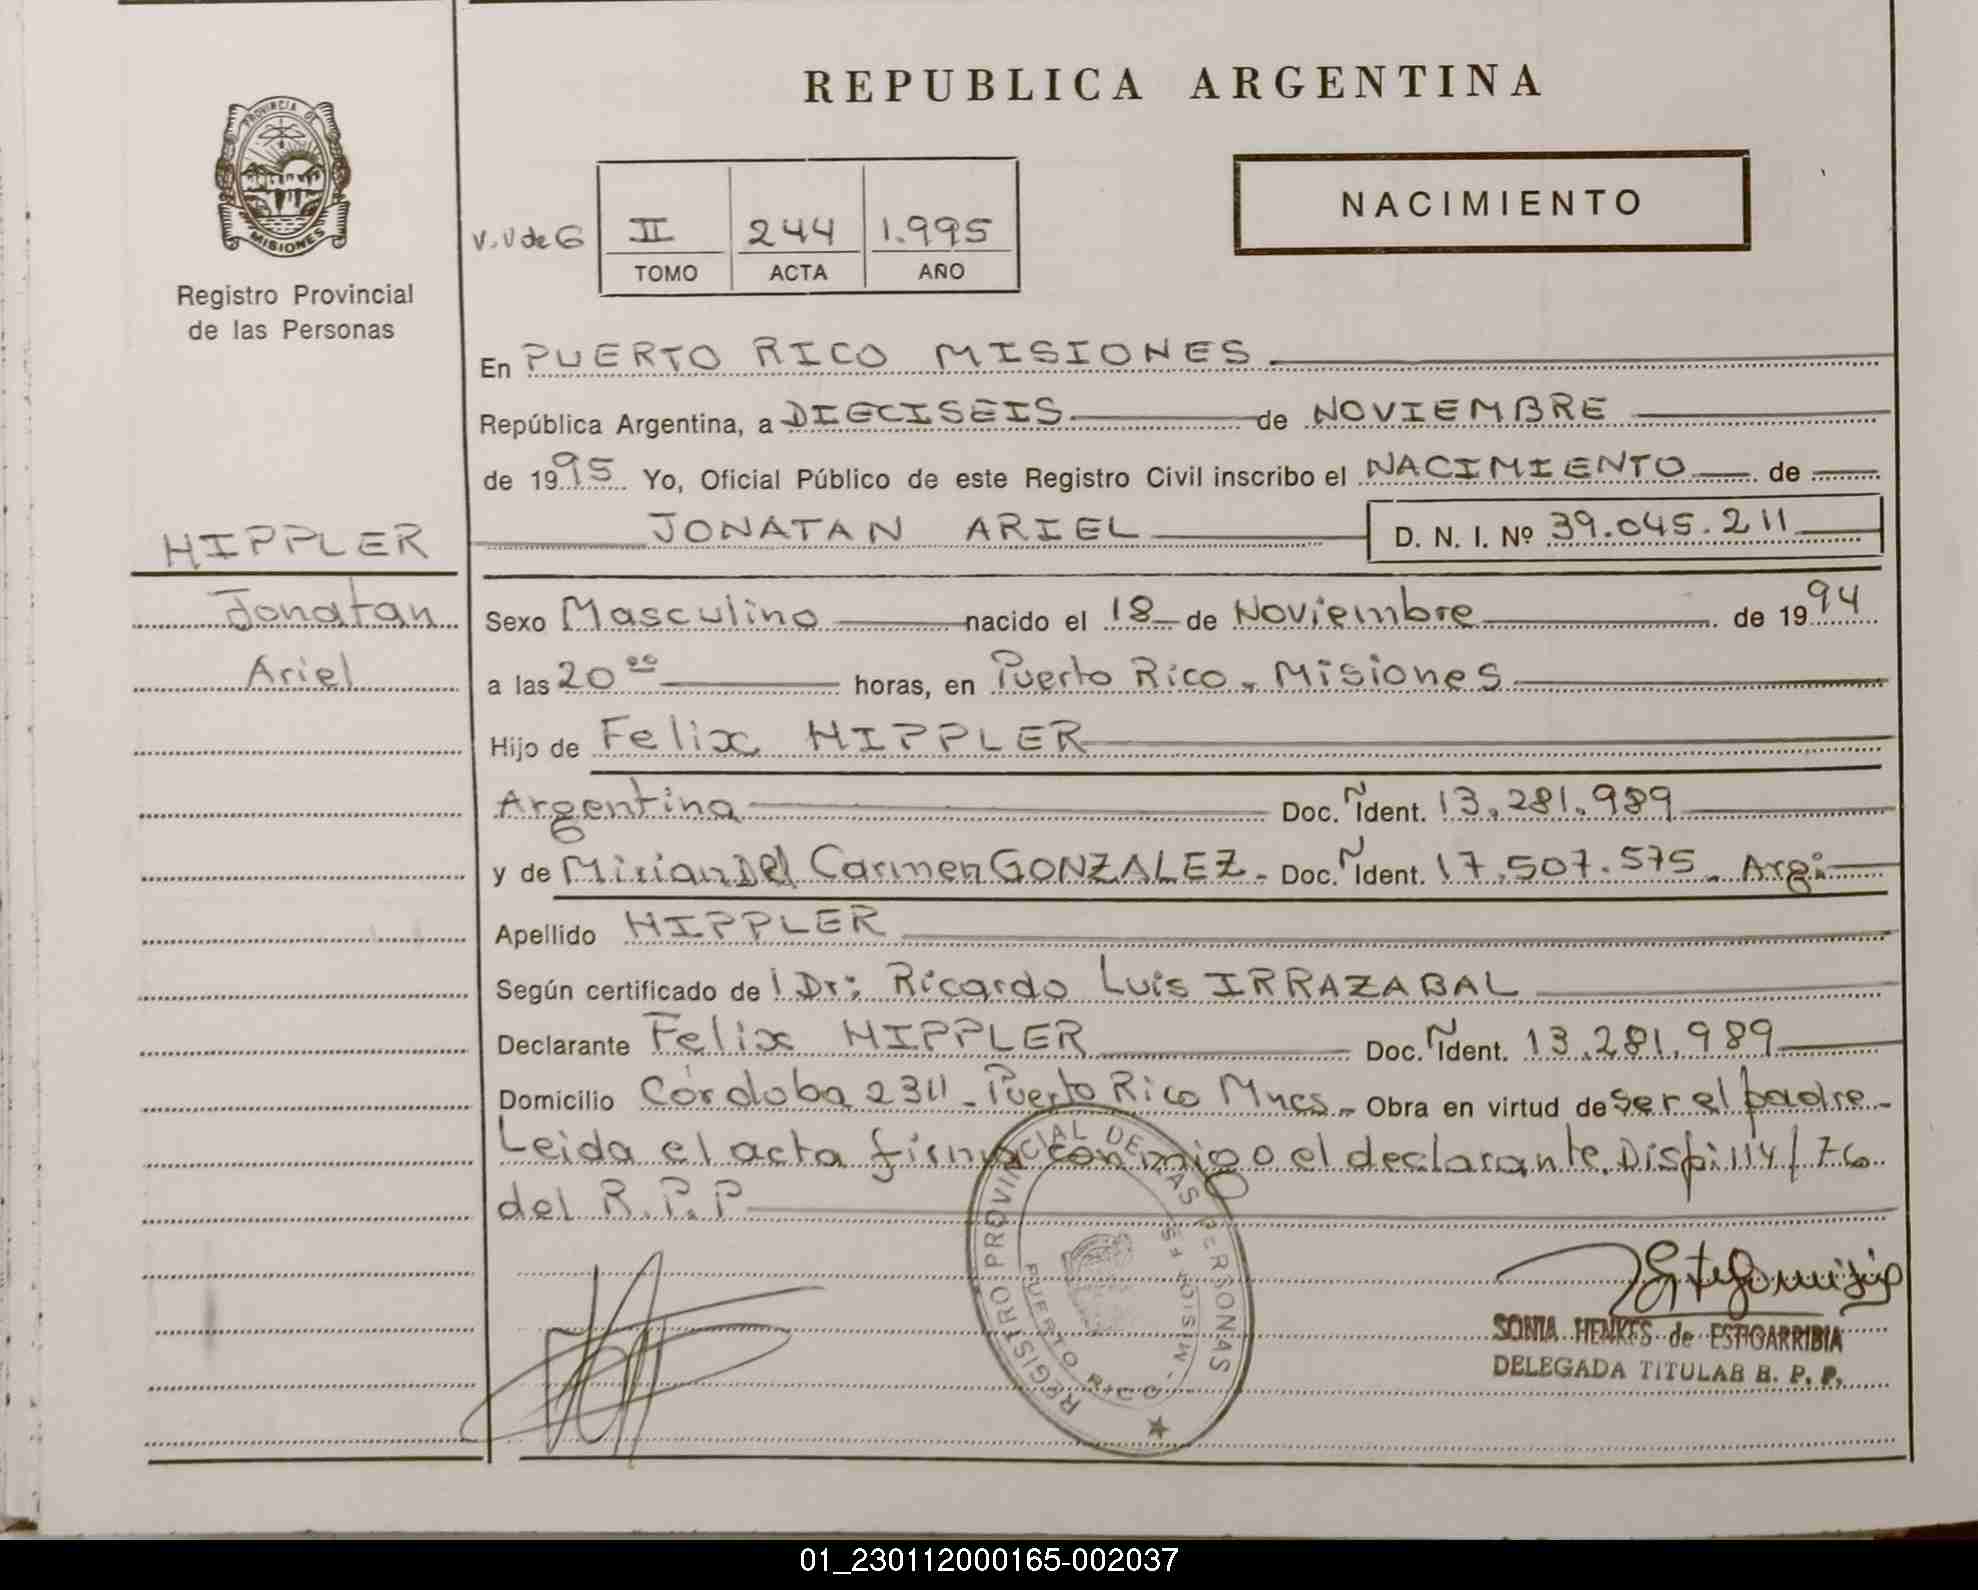 REPUBLICA ARGENTINA
PROVINCIA DE
MISIONES
Registro Provincial
de las Personas
V.V de G
II 244 1.995
TOMO ACTA AÑO
NACIMIENTO
En PUERTO RICO MISIONES
República Argentina, a DIECISEIS de NOVIEMBRE
de 1995 Yo, Oficial Público de este Registro Civil inscribo el NACIMIENTO de
JONATAN ARIEL D. N. I. Nº 39.045.211
HIPPLER
Jonatan
Ariel
Sexo Masculino nacido el 18 de Noviembre de 1994
a las 20 00 horas, en Puerto Rico - Misiones
Hijo de Felix HIPPLER
Argentina Doc. Ident. 13.281.989
y de Mirian Del Carmen GONZALEZ - Doc. Ident. 17.507.575 - Arg:
Apellido HIPPLER
Según certificado de l Dr: Ricardo Luis IRRAZABAL
Declarante Felix HIPPLER Doc. Ident. 13.281.989
Domicilio Córdoba 2311 - Puerto Rico Mnes - Obra en virtud de ser el padre -
Leida el acta firma conmigo el declarante. Disp: 114/76
del R.P.P
REGISTRO PROVINCIAL DE LAS PERSONAS
PUERTO RICO - MISIONES
SONIA HENKES de ESTIGARRIBIA
DELEGADA TITULAR R. P. P.
01_230112000165-002037